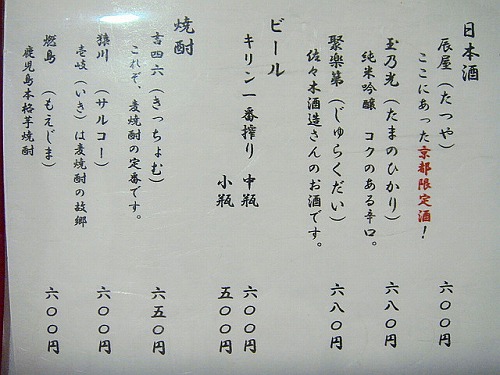 日本酒
辰屋(たつや) 六〇〇円
ここにあった京都限定酒!
玉乃光(たまのひかり) 六八〇円
純米吟醸 コクのある辛口。
聚楽第(じゅらくだい) 六八〇円
佐々木酒造さんのお酒です。
ビール
キリン一番搾り 中瓶 六〇〇円
小瓶 五〇〇円
焼酎
吉四六(きっちょむ) 六五〇円
これぞ、麦焼酎の定番です。
猿川(サルコー) 六〇〇円
壱岐(いき)は麦焼酎の故郷
燃島(もえじま) 六〇〇円
鹿児島本格芋焼酎